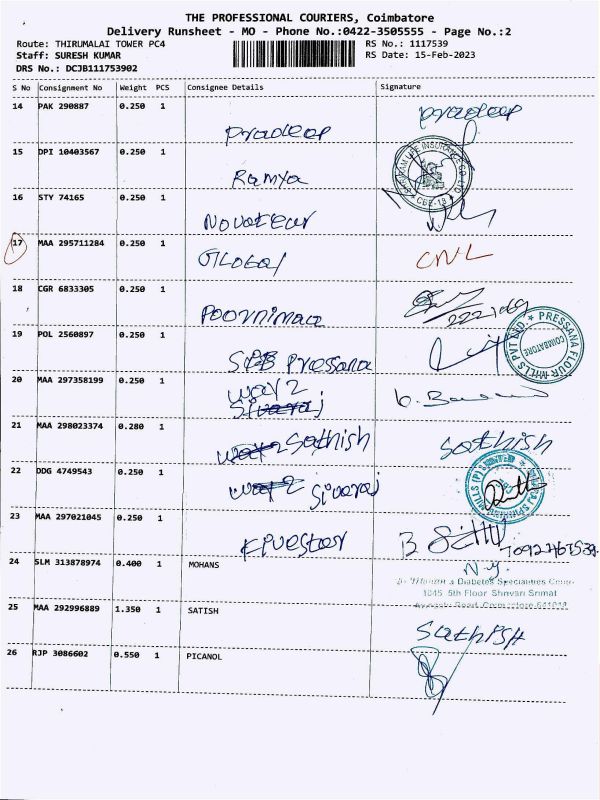 THE PROFESSIONAL COURIERS, Coimbatore
Delivery Runsheet - MO - Phone No.:0422-3505555 - Page No.:2
Route: THIRUMALAI TOWER PC4
RS No.: 1117539
Staff: SURESH KUMAR
RS Date: 15-Feb-2023
DRS No.: DCJB111753902
S No Consignment No Weight PCS Consignee Details Signature
14 PAK 290887 0.250 1
Pradeep Pradeep
15 DPI 10403567 0.250 1
Ramya
LIFE INSURANCE CO. LTD
CBE-18
16 STY 74165 0.250 1
Novateur
17 MAA 295711284 0.250 1
Global CNL
18 CGR 6833305 0.250 1
Poornimaa
19 POL 2560897 0.250 1
PRESSANA FLOUR MILLS PVT LTD.
COIMBATORE
Pressana
20 MAA 297358199 0.250 1
way 2
21 MAA 298023374 0.280 1
Sathish Sathish
22 DDG 4749543 0.250 1
Sivaraj
MILLS (P) LIMITED
23 MAA 297021045 0.250 1
Fivestar
24 SLM 313878974 0.400 1 MOHANS
Diabetes Specialities Centre
1045 5th Floor Shrivari Srimat
25 MAA 292996889 1.350 1 SATISH
Sathish
26 RJP 3086602 0.550 1 PICANOL